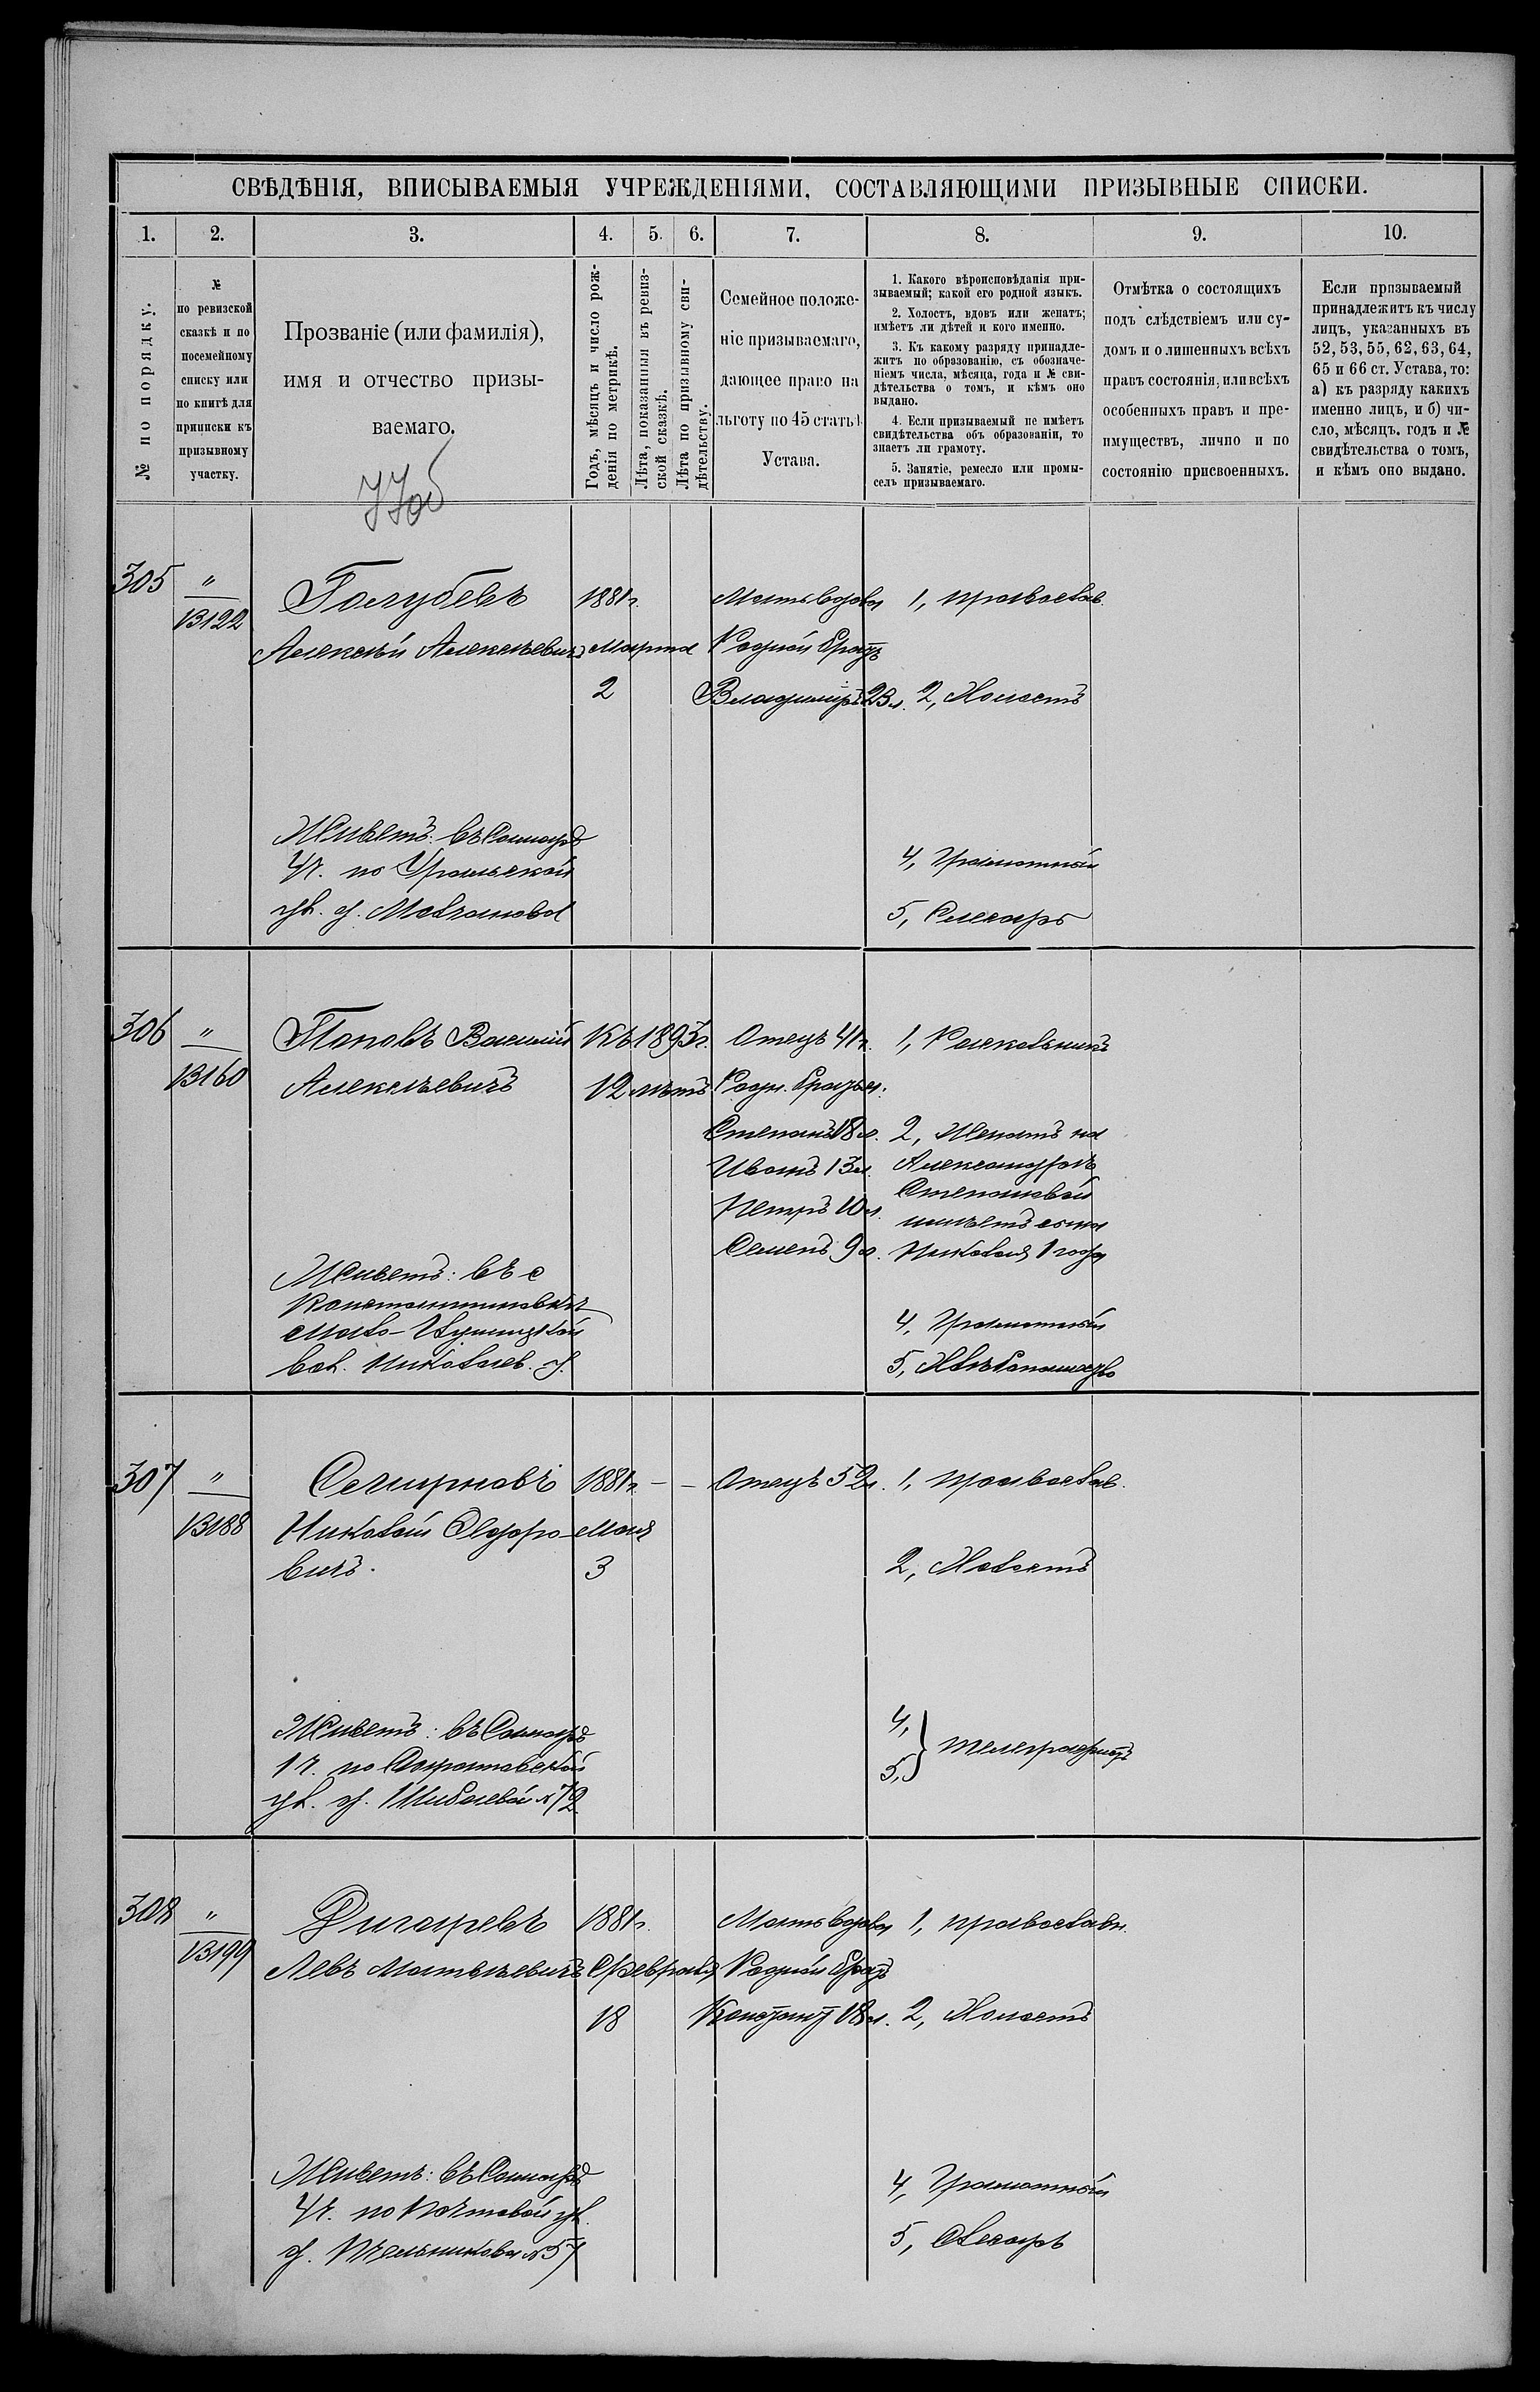 СВѢДѢНІЯ, ВПИСЫВАЕМЫЯ УЧРЕЖДЕНІЯМИ, СОСТАВЛЯЮЩИМИ ПРИЗЫВНЫЕ СПИСКИ.
1. 2. 3. 4. 5. 6. 7. 8. 9. 10.
№ по порядку.
№
по ревизской
сказкѣ и по
посемейному
списку или
по книгѣ для
приписки къ
призывному
участку.
Прозваніе (или фамилія),
имя и отчество призы-
ваемаго.
Годъ, мѣсяцъ и число рож-
денія по метрикѣ.
Лѣта, показанныя въ ревиз-
ской сказкѣ.
Лѣта по призывному сви-
дѣтельству.
Семейное положе-
ніе призываемаго,
дающее право на
льготу по 45 статьѣ
Устава.
1. Какого вѣроисповѣданія при-
зываемый; какой его родной языкъ.
2. Холостъ, вдовъ или женатъ;
имѣетъ ли дѣтей и кого именно.
3. Къ какому разряду принадле-
житъ по образованію, съ обозначе-
ніемъ числа, мѣсяца, года и № сви-
дѣтельства о томъ, и кѣмъ оно
выдано.
4. Если призываемый не имѣетъ
свидѣтельства объ образованіи, то
знаетъ ли грамоту.
5. Занятіе, ремесло или промы-
селъ призываемаго.
Отмѣтка о состоящихъ
подъ слѣдствіемъ или су-
домъ и о лишенныхъ всѣхъ
правъ состоянія, или всѣхъ
особенныхъ правъ и пре-
имуществъ, лично и по
состоянію присвоенныхъ.
Если призываемый
принадлежитъ къ числу
лицъ, указанныхъ въ
52, 53, 55, 62, 63, 64,
65 и 66 ст. Устава, то:
а) къ разряду какихъ
именно лицъ, и б) чи-
сло, мѣсяцъ, годъ и №
свидѣтельства о томъ,
и кѣмъ оно выдано.
305 " Голубевъ 1881г. Мать вдова 1, православ.
13122 Алексѣй Алексѣевичъ Марта Родной братъ
2 Владиміръ 23 л. 2, Холостъ
Живетъ: въ Самарѣ
4 ч. по Уральской 4, Грамотный
ул. д. Молчанова 5, Слесарь
306 " Поповъ Василій Къ 1893г. Отецъ 41 г. 1, Раскольникъ
13160 Алексѣевичъ 12 лѣтъ Родн. братья:
Степанъ 18 л. 2, Женатъ на
Иванъ 13 л. Александрѣ
Степановой
Петръ 10 л. имѣетъ сына
Семенъ 9 л. Николая 1 года
Живетъ: въ с
Константиновкѣ
4, Грамотный
вол. Николаев. у. 5, Хлѣбопашество
307 " 1881г. - - Отецъ 52 л. 1, православ.
13188 Николай Ѳедоро- Мая
вичъ. 3 2, Холостъ
Живетъ: въ Самарѣ 4,
1 ч. по Саратовской 5, } телеграфистъ
ул. д. Шабаевой № 72
308 " Дигаревъ 1881г. Мать вдова 1, православн.
13199 Левъ Матвѣевичъ Февраля Родной братъ
18 Констант 18 л. 2, Холостъ
Живетъ: въ Самарѣ
4 ч. по Почтовой ул. 4, Грамотный
д. Пчельникова № 57 5, Слесарь